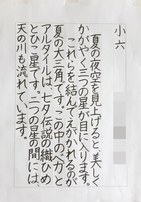 小六
「夏の夜空を見上げると、美しく
かがやく三つの星が目に入ります。
これらを結んでえがかれるのが
夏の大三角です。この中の一つ、
アルタイルは、七夕伝説の織ひめ
とひこ星です。二つの星の間には、
天の川も流れています。